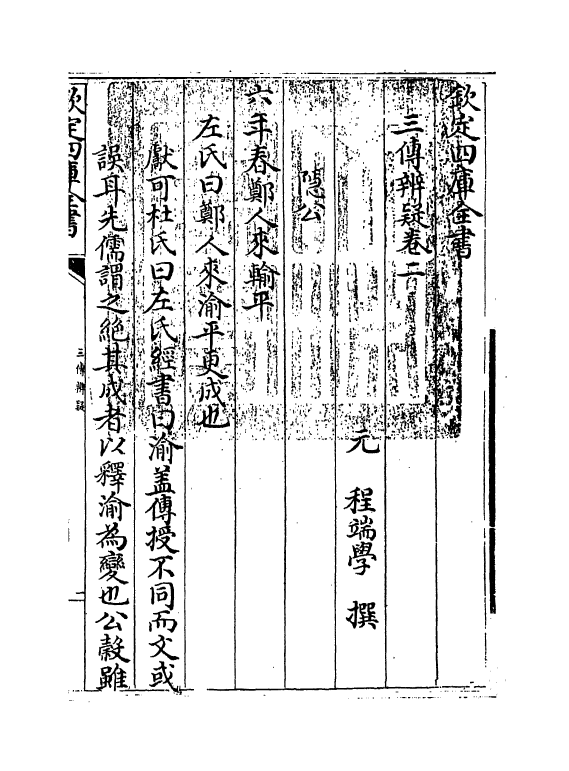 欽定四庫全書
三傳辨疑卷二
元 程端學 撰
隱公
六年春鄭人來輸平
左氏曰鄭人來渝平更成也
獻可杜氏曰左氏經書曰渝盖傳授不同而文或
誤耳先儒謂之絶其成者以釋渝為變也公榖雖
欽定四庫全書
三傳辨疑
一